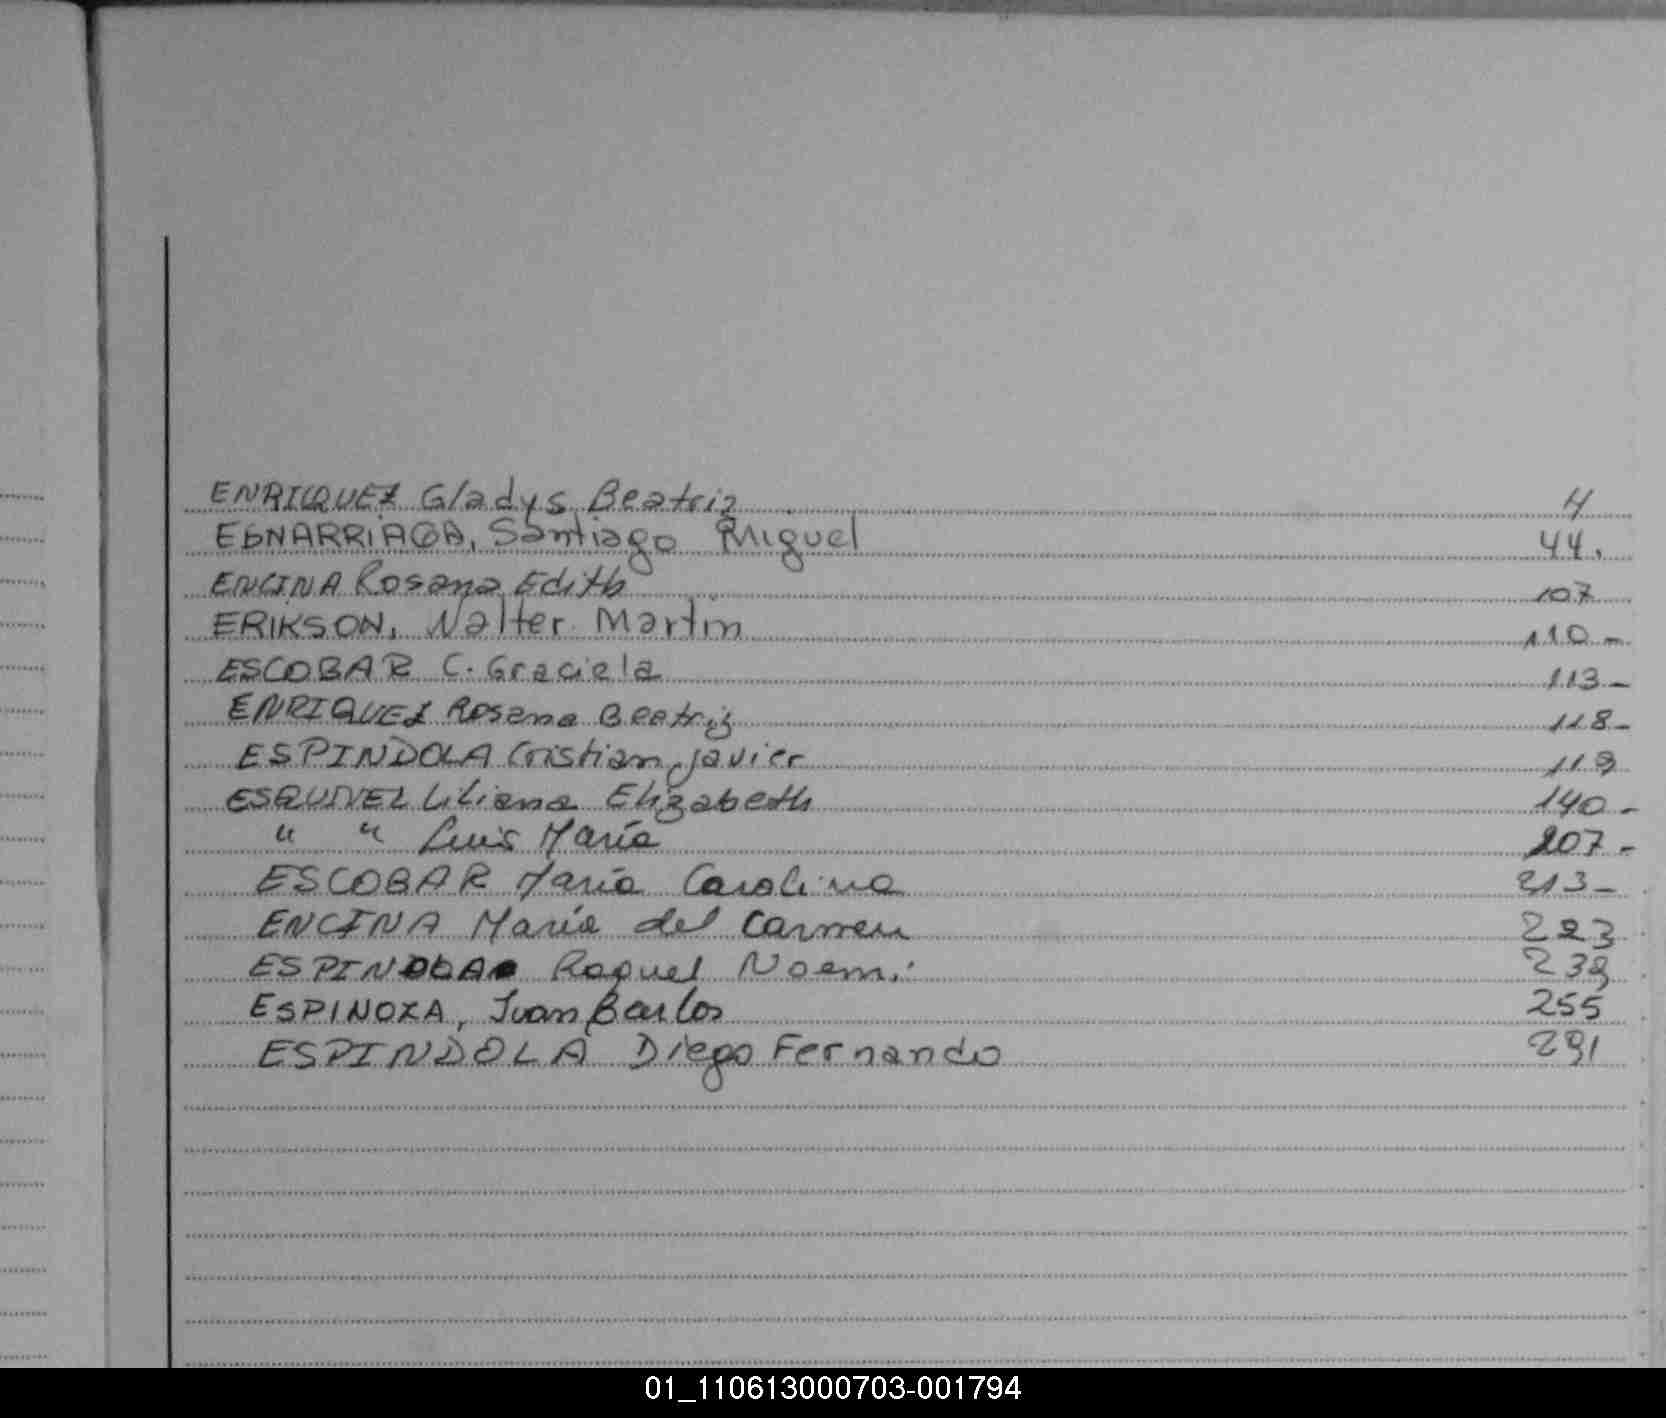 ENRIQUEZ Gladys Beatriz 4
EGNARRIAGA, Santiago Miguel 44.
ENCINA Rosana Edith 107
ERIKSON, Walter Martin 110-
ESCOBAR C. Graciela 113-
ENRIQUEZ Rosana Beatriz 118-
ESPINDOLA Cristian Javier 119
ESQUIVEL Liliana Elizabeth 140-
" " Luis María 207-
ESCOBAR María Carolina 213-
ENCINA María del Carmen 223
ESPINDOLA Raquel Noemi 239
ESPINOZA, Juan Carlos 255
ESPINDOLA Diego Fernando 291
01_110613000703-001794